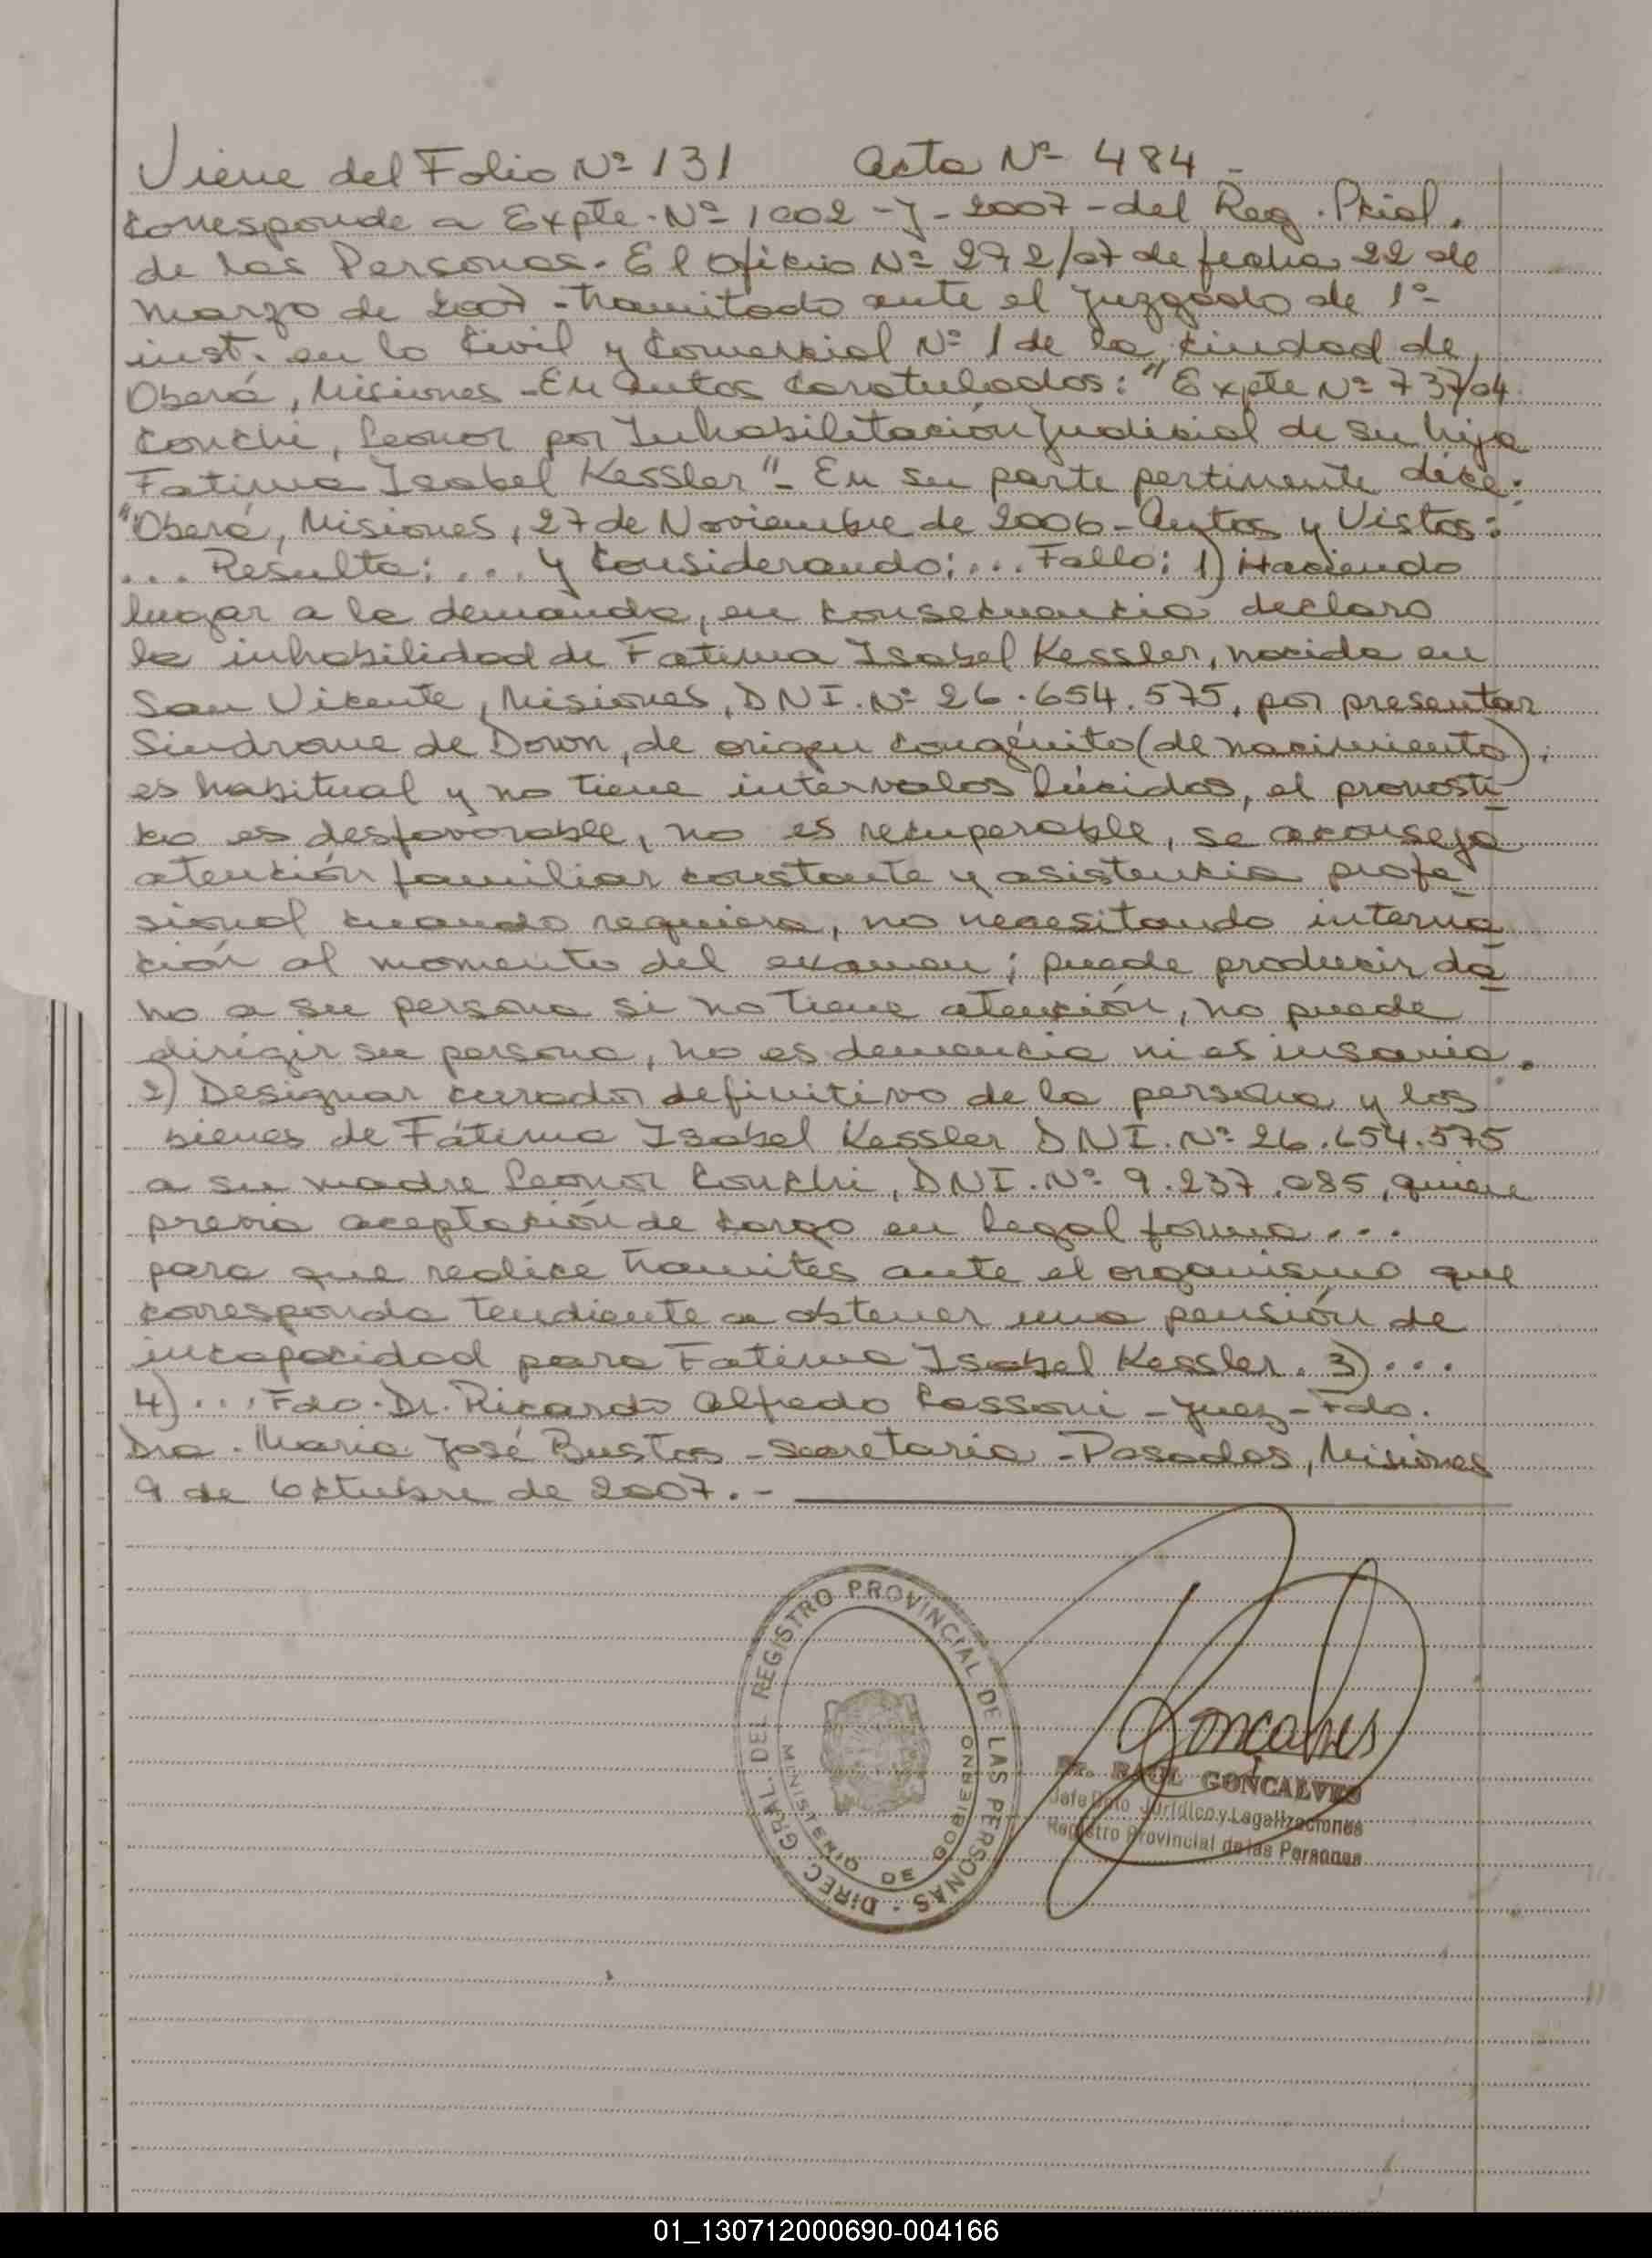 Viene del Folio Nº 131 Acta Nº 484 -
Corresponde a Expte. Nº 1002 - J - 2007 - del Reg. Pcial.
de las Personas. El Oficio Nº 272/07 de fecha 22 de
marzo de 2007 - tramitado ante el Juzgado de 1º
inst. en lo Civil y Comercial Nº 1 de la ciudad de
Oberá, Misiones - En Autos Caratulados: "Expte Nº 737/04
Conchi, Leonor por Inhabilitación Judicial de su hija
Fatima Isabel Kessler" - En su parte pertinente dice:
"Oberá, Misiones, 27 de Noviembre de 2006 - Autos y Vistos:
... Resulta: ... y Considerando: ... Fallo: 1) Haciendo
lugar a la demanda, en consecuencia declaro
la inhabilidad de Fatima Isabel Kessler, nacida en
San Vicente, Misiones, DNI. Nº 26.654.575, por presentar
Sindrome de Down, de origen congénito (de nacimiento).
es habitual y no tiene intervalos lúcidos, el pronosti
co es desfavorable, no es recuperable, se aconseja
atención familiar constante y asistencia profe
sional cuando requiera, no necesitando interna
ción al momento del examen; puede producir da
ño a su persona si no tiene atención, no puede
dirigir su persona, no es demencia ni es insania.
2) Designar curador definitivo de la persona y los
bienes de Fátima Isabel Kessler DNI. Nº 26.654.575
a su madre Leonor Conchi, DNI. Nº 9.237.085, quien
previa aceptación de cargo en legal forma ...
para que realice tramites ante el organismo que
corresponda tendiente a obtener una pensión de
incapacidad para Fatima Isabel Kessler. 3) ...
4) ... Fdo. Dr. Ricardo Alfredo Cassoni - Juez - Fdo.
Dra. Maria José Bustos - Secretaria - Posadas, Misiones
9 de Octubre de 2007. -
DIREC. GRAL. DEL REGISTRO PROVINCIAL DE LAS PERSONAS
MINISTERIO DE GOBIERNO
Goncalves
Dr. RAUL GONCALVES
Jefe Dpto Jurídico y Legalizaciones
Registro Provincial de las Personas
01_130712000690-004166